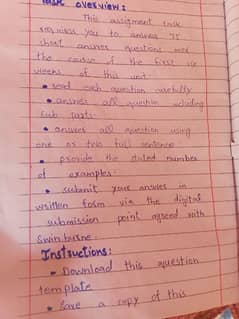 Task overview:
This assigment task
requires you to answer 15
short answer questions over
the course of the first six
weeks of this unit.
• read each question carefully
• answer all question including
sub parts.
• answer all question using
one or two full sentence
• provide the stated number
of examples.
• submit your answer in
written form via the digital
submission point agreed with
Swinburne.
Instructions:
• Download this question
template
• Save a copy of this